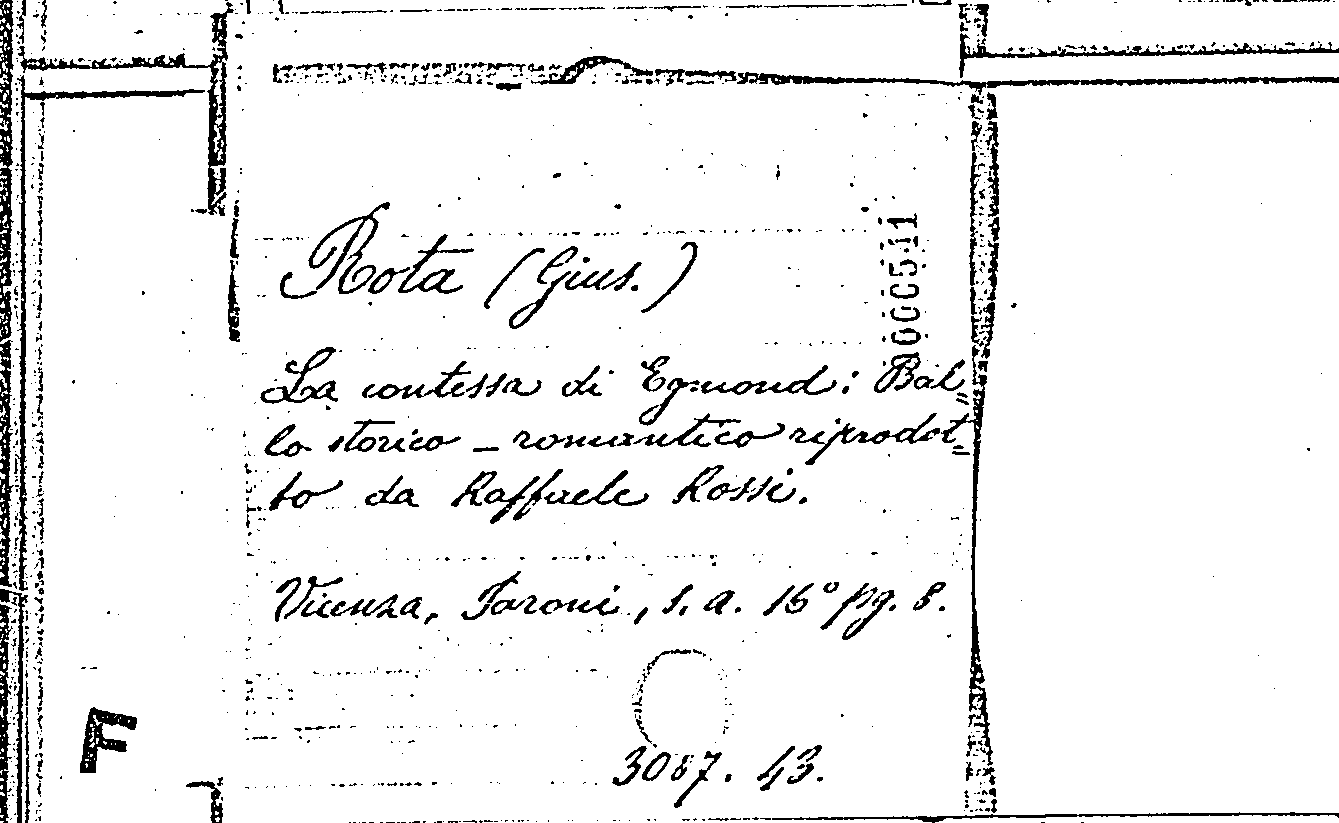 Rota (Gius.)
000511
La contessa di Egmond: Bal„
lo storico - romantico riprodot„
to da Raffaele Rossi.
Vicenza, Faroni, s. a. 16° pg. 8.
3087. 43.
F